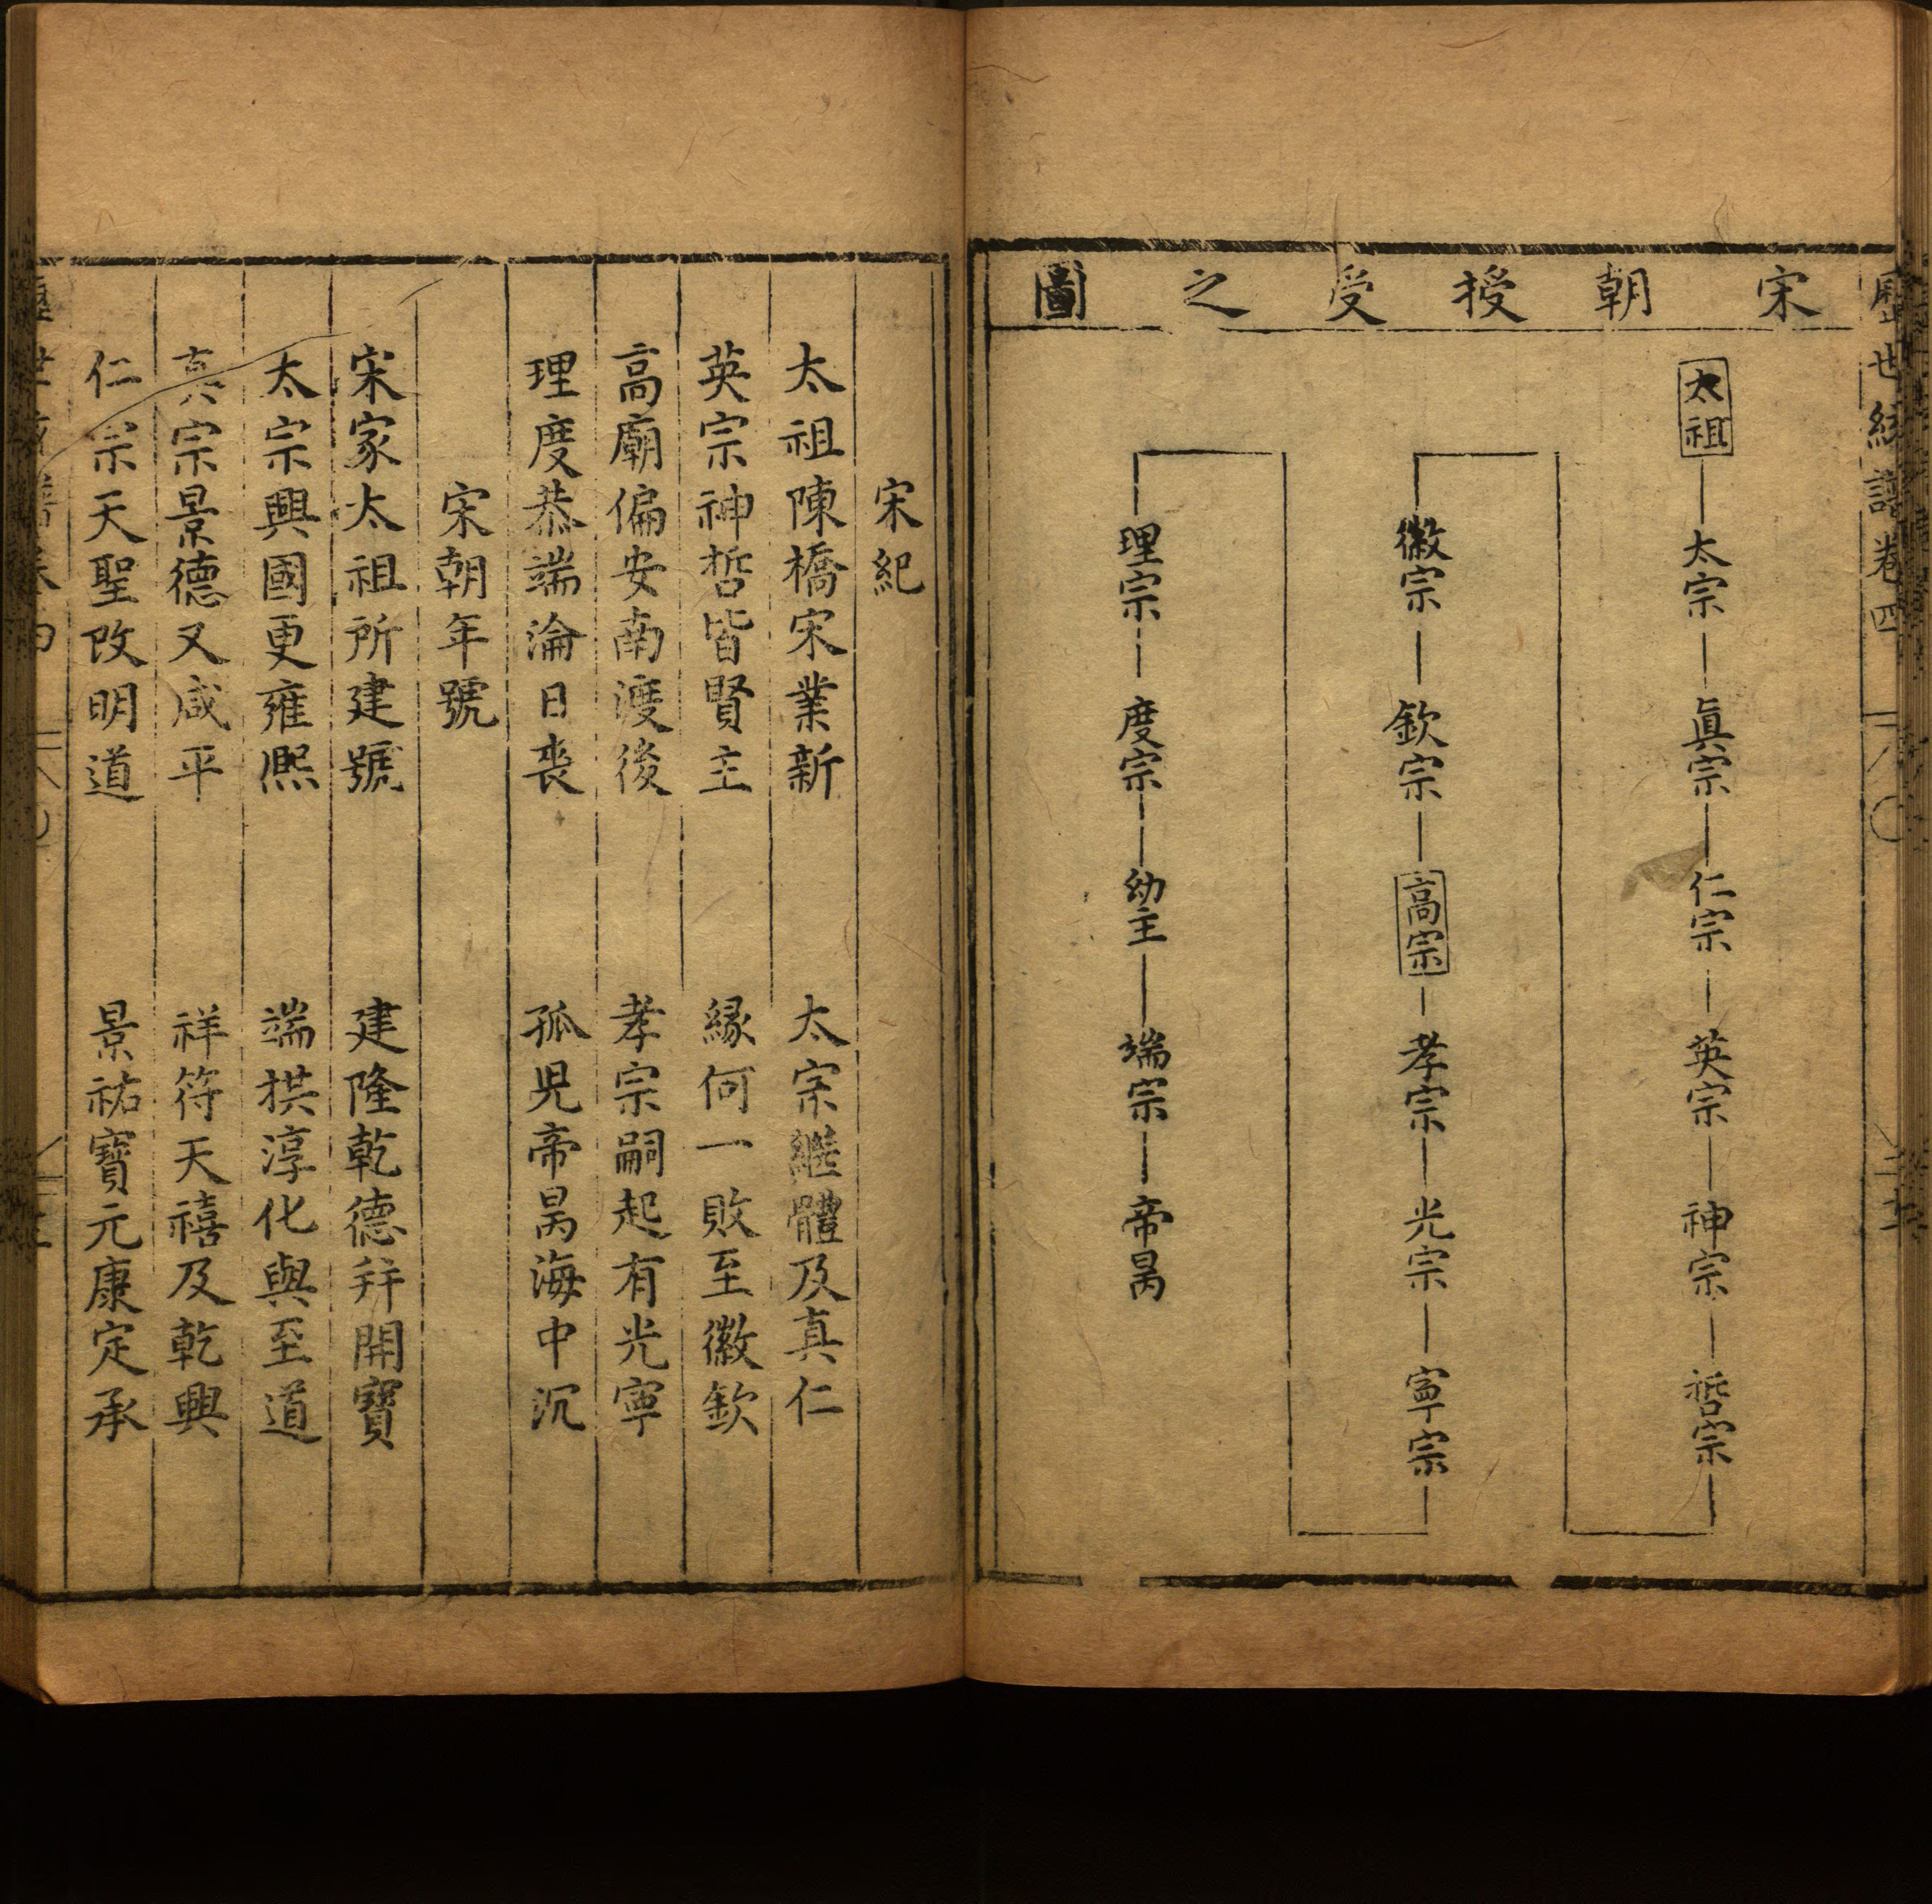 宋朝授受之圖
太祖 太宗 眞宗 仁宗 英宗 神宗 哲宗
徽宗 欽宗 高宗 孝宗 光宗 寧宗
理宗 度宗 幼主 端宗 帝昺
宋紀
太祖陳橋宋業新 太宗繼體及真仁
英宗神哲皆賢主 緣何一敗至徽欽
高廟偏安南渡後 孝宗嗣起有光寧
理度恭端淪日喪 孤児帝昺海中沉
宋朝年號
宋家太祖所建號 建隆乾德并開寶
太宗興國更雍熈 端拱淳化與至道
真宗景德又咸平 祥符天禧及乾興
仁宗天聖改明道 景祐寶元康定承